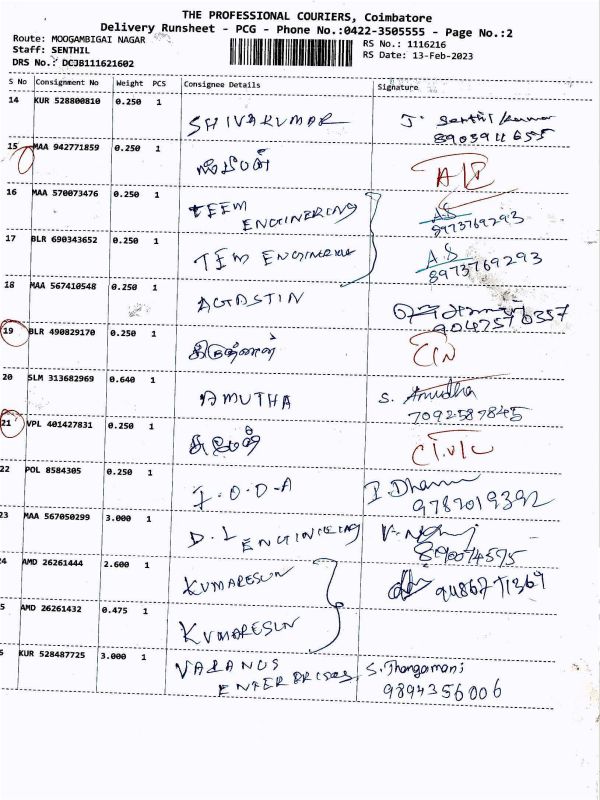 THE PROFESSIONAL COURIERS, Coimbatore
Delivery Runsheet - PCG - Phone No.:0422-3505555 - Page No.:2
Route: MOOGAMBIGAI NAGAR
Staff: SENTHIL
DRS No.: DCJB111621602
RS No.: 1116216
RS Date: 13-Feb-2023
S No Consignment No Weight PCS Consignee Details Signature
14 KUR 528800810 0.250 1 SHIVAKUMAR J. Senthil kumar
15 MAA 942771859 0.250 1
16 MAA 570073476 0.250 1 TEEM ENGINERING AS 8973769293
17 BLR 690343652 0.250 1 TEM ENGINERING AS 8973769293
18 MAA 567410548 0.250 1 AGASTIN 9042570357
19 BLR 490829170 0.250 1
20 SLM 313682969 0.640 1 AMUTHA S. Anudha 7092587845
21 VPL 401427831 0.250 1
22 POL 8584305 0.250 1 I.O.D.A
23 MAA 567050299 3.000 1 D.L ENGINIERING
AMD 26261444 2.600 1 KUMARESUN
AMD 26261432 0.475 1 KUMARESUN
KUR 528487725 3.000 1 VARANUS ENTERPRISES S. Thangamani
9894356006